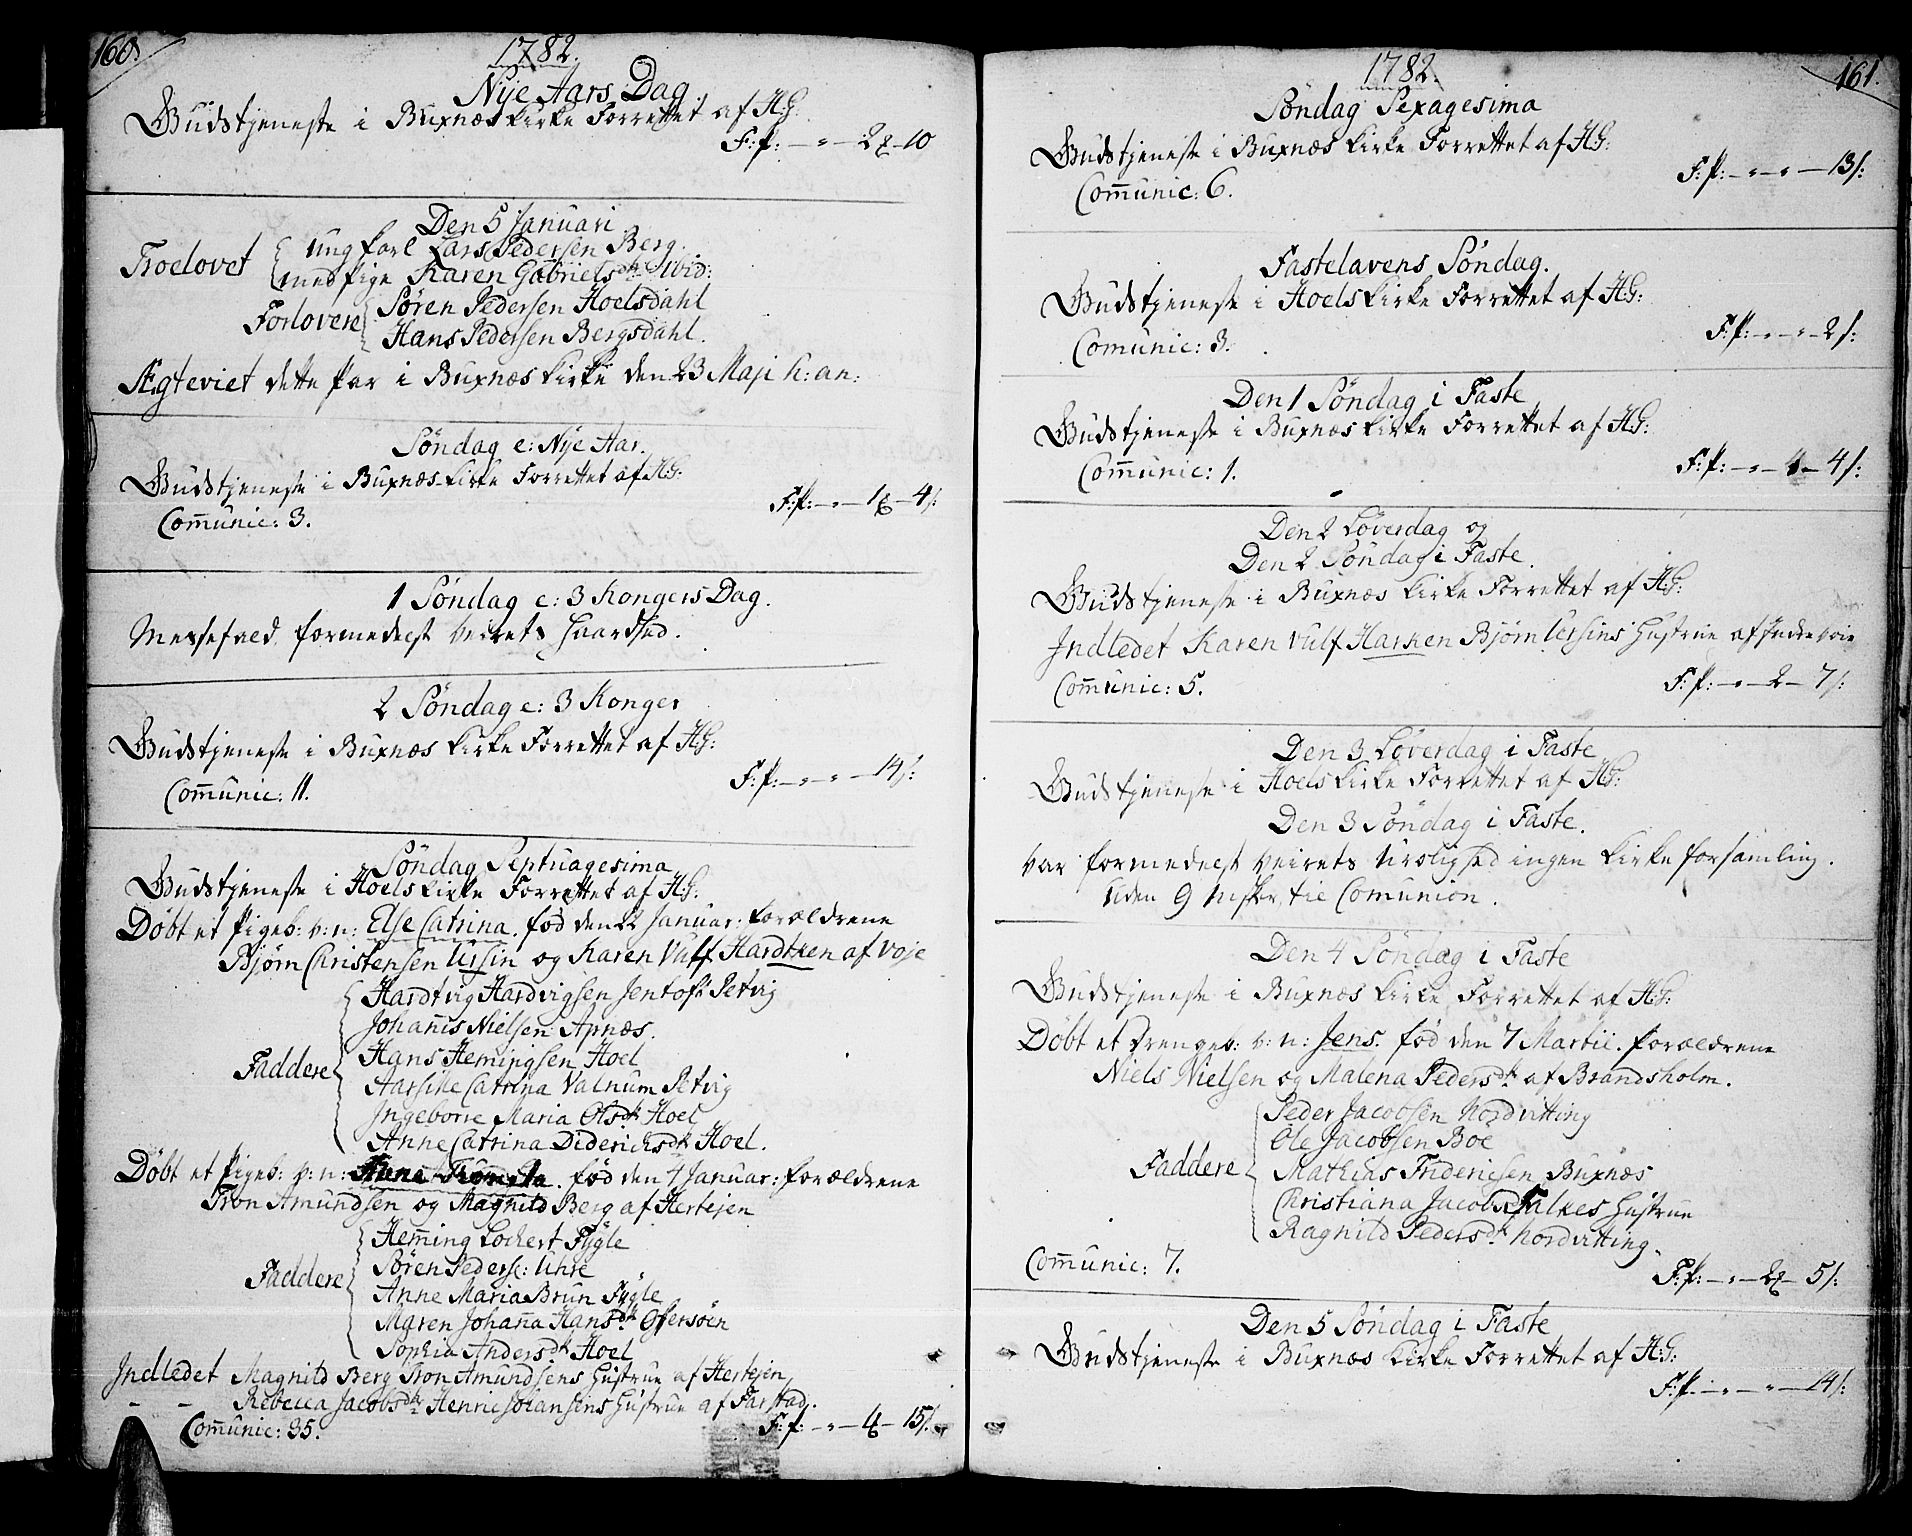 160
1782.
Nÿe Aars Dag
Gudstjeneste i Buxnæs kirke Forrettet af H:G:
F:P: — " — 2 ℔ — 10
Den 5 Januari
Troelovet ung karl Lars Pedersen Berg.
med Pige Karen Gabrielsdtr ibid:
Forlovere Søren Pedersen Hoelsdahl
Hans Pedersen Bergsdahl.
Ægteviet dette Par i Buxnæs kirke den 23 Maji h: an:
Søndag e: Nÿe Aar.
Gudstjeneste i Buxnæs kirke Forrettet af H:G:
F:P: — " — 1 ℔ — 4 s:
Com̄unic: 3.
1 Søndag e: 3 Kongers Dag.
Messefald formedelst Veirets haardhed.
2 Søndag e: 3 Konger
Gudstjeneste i Buxnæs kirke Forrettet af H:G:
F:P: — " — " — 14 s:
Com̄unic: 11.
Søndag Septuagesima
Gudstjeneste i Hoels kirke Forrettet af H:G:
Døbt et Pigeb: v: n: Else Catrina. fød den 22 Januar: forældrene
Bjørn Christensen Ursin og Karen Vulf Hardtken af Voje
Hardtvig Hardvigsen Jentoft Petvig
Johan̄es Nielsen Apnæs.
Faddere Hans Hemingsen Hoel
Catrina Valnum Petvig
Ingeborre Maria Olsdtr Hoel
Anne Catrina Diderichsdtr Hoel.
Døbt et Pigeb: v: n: fød den 4 Januar: forældrene
Tron Amundsen og Magnild Berg af Hertejen
Hem̄ing Lochert Fÿgle
Faddere Søren Peders: Uhre
Anne Maria Brun Fÿgle
Maren Johan̄a Hansdtr Offersøen
Sophia Andersdtr Hoel
Indledet Magnild Berg Tron Amundsens Hustrue af Hertejen
— — Rebecca Jacobsdtr Henric Johansens Hustrue af Farstad.
Com̄unic: 35. F:P: — " — 4 ℔ — 15 s:
161.
1782.
Søndag Sexagesima
Gudstjeneste i Buxnæs kirke Forrettet af H:G:
F:P: — " — " — 13 s:
Com̄unic: 6.
Fastelavens Søndag.
Gudstjeneste i Hoels kirke Forrettet af H:G:
F:P: — " — " — 2 s:
Comunic: 3.
Den 1 Søndag i Faste
Gudstjeneste i Buxnæs kirke Forrettet af H:G:
F:P: — " — 4 — 4 s:
Com̄unic: 1.
Den 2 Løverdag og
Den 2 Søndag i Faste.
Gudstjeneste i Buxnæs kirke Forrettet af H:G:
Indledet Karen Vulf Harken Bjørn Ursins Hustrue af Indre Voie
Com̄unic: 5. F:P: — " — 2 — 7 s:
Den 3 Løverdag i Faste
Gudstjeneste i Hoels kirke Forrettet af H:G:
Den 3 Søndag i Faste.
Var formedelst Veirets Urolighed ingen kirke forsamling.
uden 9 til Comunion.
Den 4 Søndag i Faste
Gudstjeneste i Buxnæs kirke Forrettet af H:G:
Døbt et Drengeb: v: n: Jens. fød den 7 Martii. forældrene
Niels Nielsen og Malena Pedersdtr af Brandsholm.
Peder Jacobsen Nordvitting
Ole Jacobsen Boe
Faddere Mathias Friderichsen Buxnæs
Christiana Jacob Falkes Hustrue
Ragnild Pedersdtr Nordvitting.
Com̄unic: 7.
F:P: — " — 2 ℔ — 5 s:
Den 5 Søndag i Faste
Gudstjeneste i Buxnæs kirke Forrettet af H:G:
F:P: — " — " — 14 s: